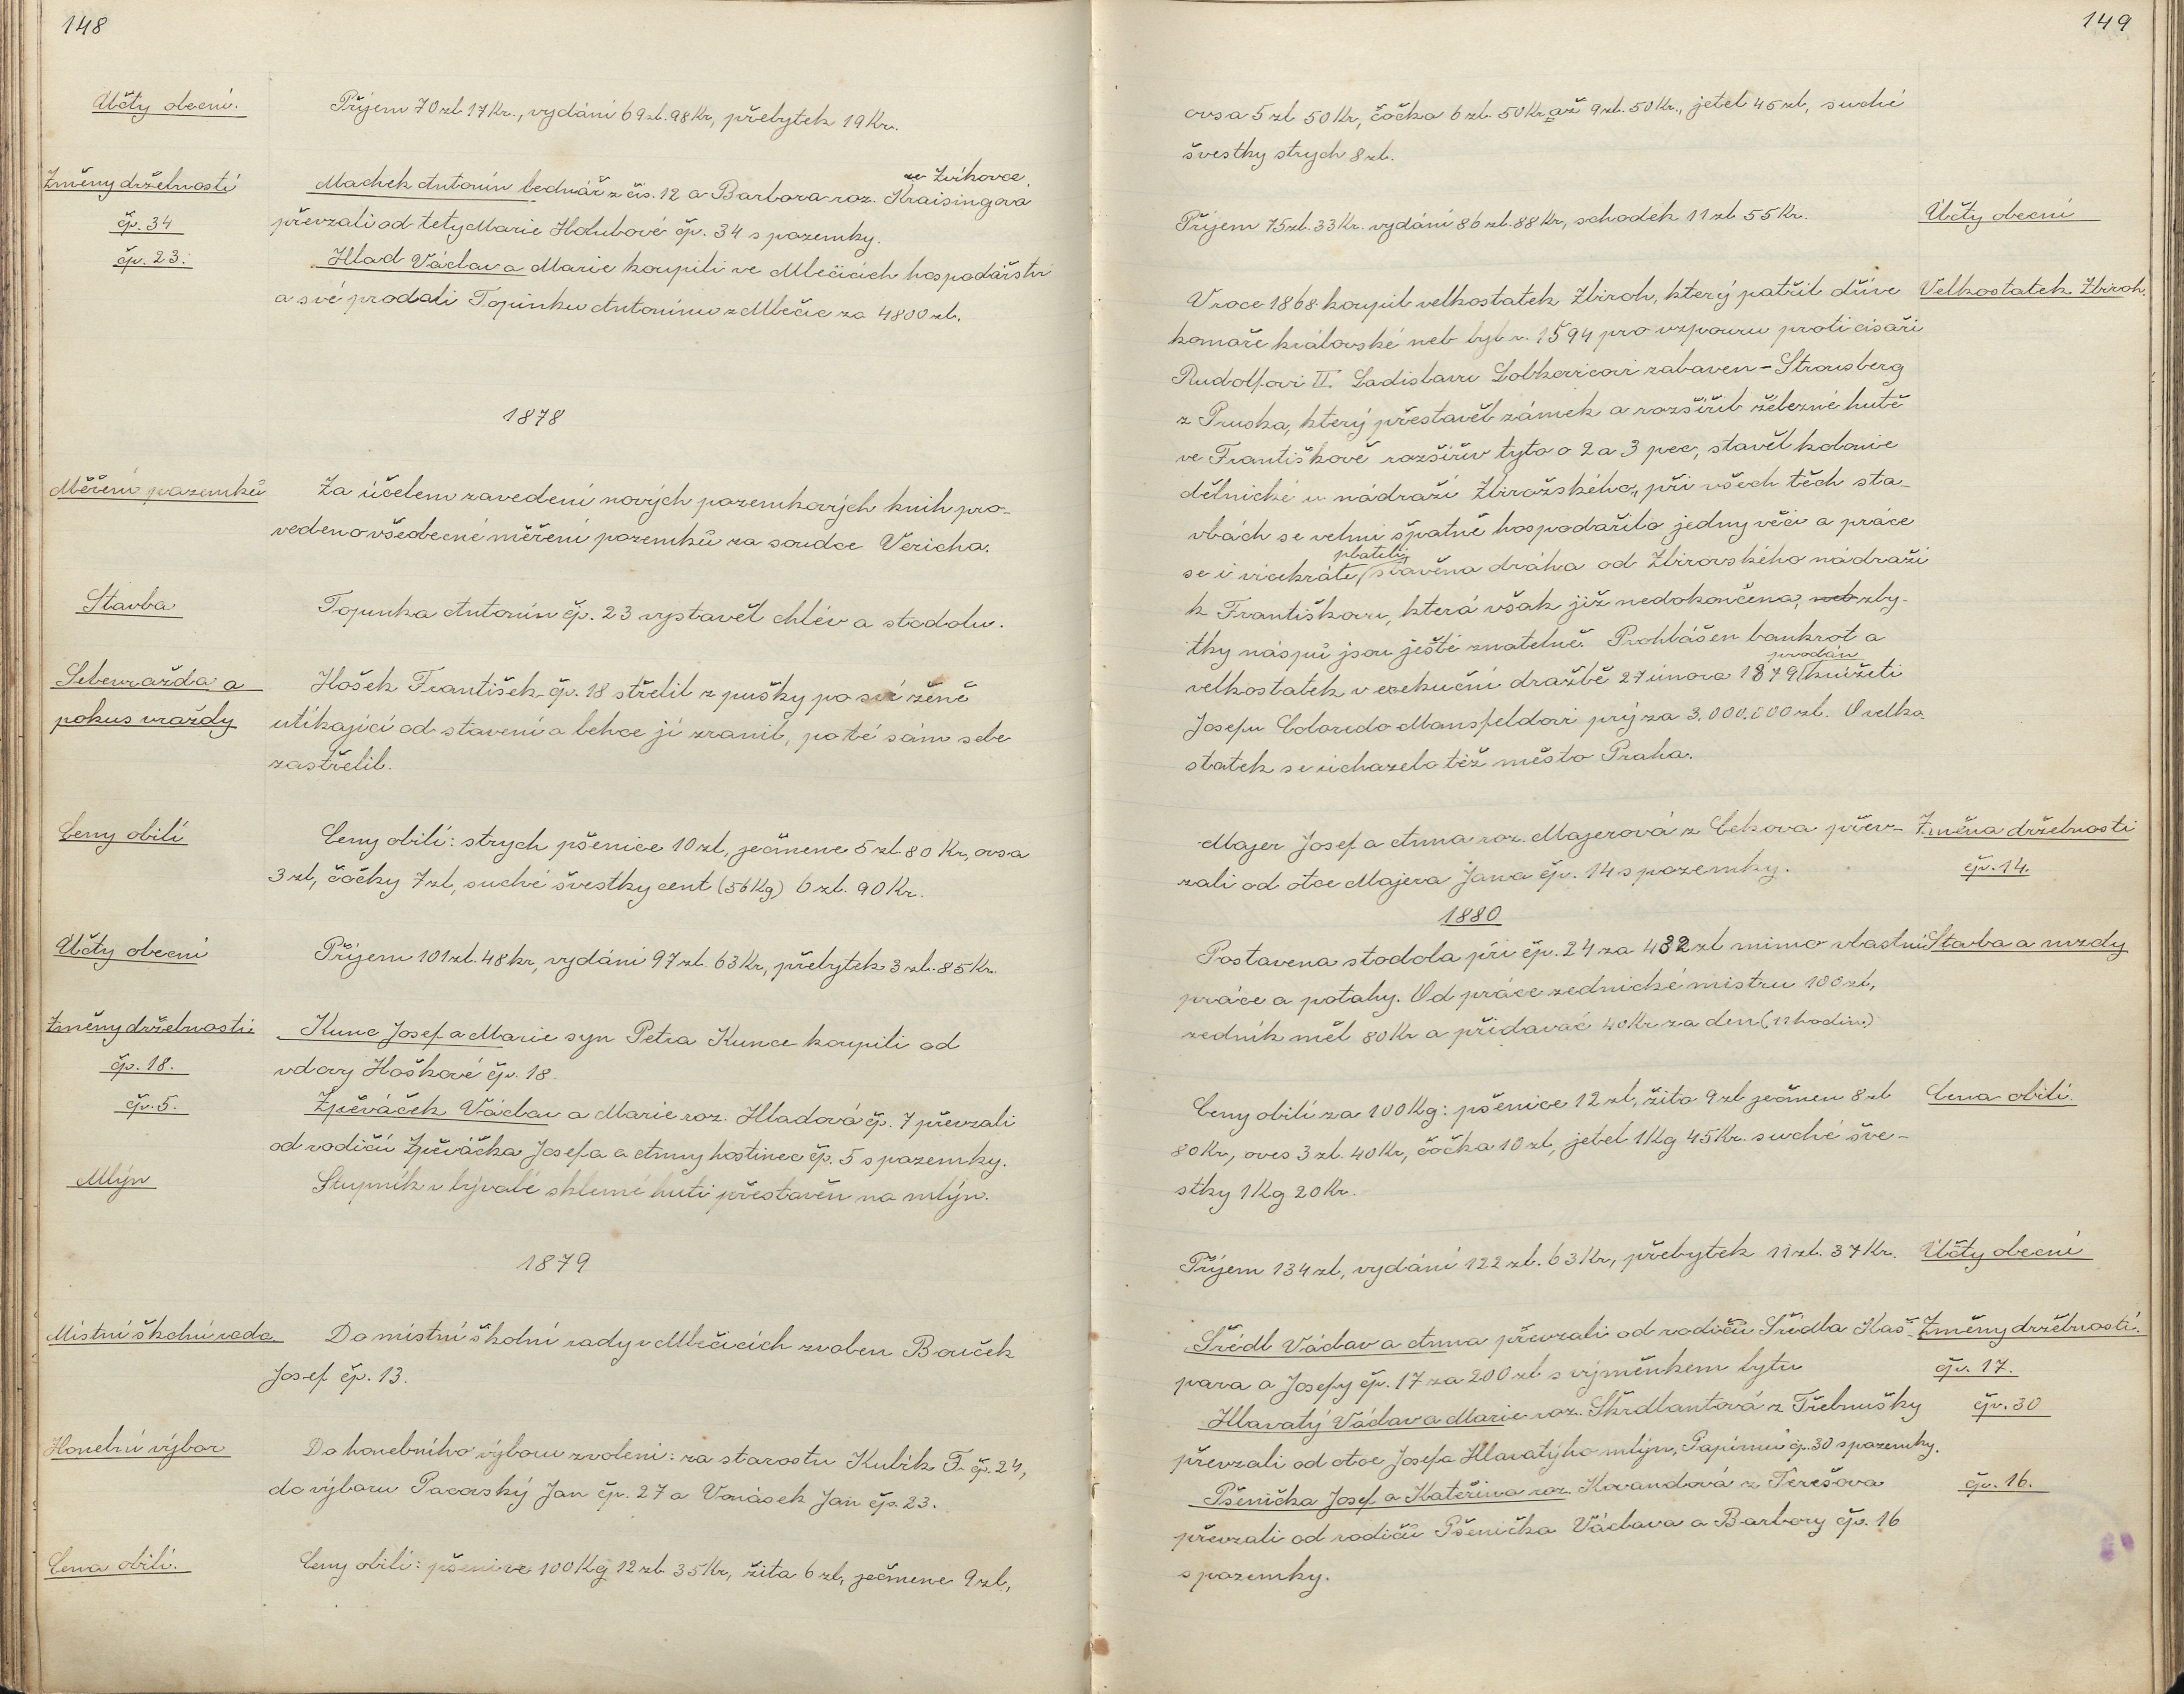 148
Účty obecní.
Příjem 70 zl 17 Kr., vydání 69 zl. 98 Kr, přebytek 19 Kr.
Změny držebností
ze Zvíkovce,
Machek Antonín bednář z čís. 12 a Barbora roz. Kraisingova
čp. 34
převzali od tety Marie Holubové čp. 34 s pozemky.
čp. 23.
Hlad Václav a Marie koupili ve Mlečicích hospodářství
a své prodali Topinkovi Antonínu z Mlečic za 4800 zl.
1878
Měření pozemků
Za účelem zavedení nových pozemkových knih pro-
vedeno všeobecné měření pozemků za soudce Vericha.
Stavba
Topinka Antonín čp. 23 vystavěl chlév a stodolu.
Sebevražda a
Hošek František čp. 18 střelil z pušky po své ženě
pokus vraždy
utíkající od stavení a lehce jí zranil, po té sám sebe
zastřelil.
Ceny obilí
Ceny obilí: strych pšenice 10 zl, ječmene 5 zl. 80 Kr, ovsa
3 zl, čočky 7 zl, suché švestky cent (56 Kg) 6 zl. 90 Kr.
Účty obecní
Příjem 101 zl. 48 kr, vydání 97 zl. 63 Kr, přebytek 3 zl. 85 Kr.
Změny držebností
Kunc Josef a Marie syn Petra Kunce koupili od
čp. 18.
vdovy Hoškové čp. 18.
čp. 5.
Zpěváček Václav a Marie roz. Hladová čp. 7 převzali
od rodičů Zpěváčka Josefa a Anny hostinec čp. 5 s pozemky.
Mlýn
Stupník v bývalé sklené huti přestavěn na mlýn.
1879
Místní školní rada
Do místní školní rady v Mlečicích zvolen Bouček
Josef čp. 13.
Honební výbor
Do honebního výboru zvoleni: za starostu Kubík F. čp. 24,
do výboru Pacovský Jan čp. 27 a Vonásek Jan čp. 23.
Cena obilí.
Ceny obilí: pšenice 100 Kg 12 zl 35 Kr, žita 6 zl, ječmene 9 zl,
149
ovsa 5 zl 50 Kr, čočka 6 zl. 50 Kr až 9 zl. 50 Kr., jetel 45 zl, suché
švestky strych 8 zl.
Příjem 75 zl. 33 Kr. vydání 86 zl. 88 Kr, schodek 11 zl 55 Kr.
Účty obecní
V roce 1868 koupil velkostatek Zbiroh, který patřil dříve
Velkostatek Zbiroh.
komoře královské neb byl r. 1594 pro vzpouru proti císaři
Rudolfovi II. Ladislavu Lobkovicovi zabaven - Strousberg
z Pruska, který přestavěl zámek a rozšířil železné hutě
ve Františkově rozšířiv tyto o 2 a 3 pec, stavěl kolonie
dělnické u nádraží Zbirožského, při všech těch sta-
vbách se velmi špatně hospodařilo jedny věci a práce
platili,
se i vícekráte, stavěna dráha od Zbirovského nádraží
k Františkovu, která však již nedokončena, neb zby-
tky náspů jsou ještě znatelné. Prohlášen bankrot a
prodán
velkostatek v exekuční dražbě 27 února 1879 knížeti
Josefu Colloredo Mansfeldovi prý za 3.000.000 zl. O velko-
statek se ucházelo též město Praha.
Majer Josef a Anna roz. Majerová z Čekova přev-
Změna držebnosti
zali od otce Majera Jana čp. 14 s pozemky.
čp. 14.
1880
Postavena stodola při čp. 24 za 432 zl mimo vlastní
Stavba a mzdy
práce a potahy. Od práce zednické mistru 100 zl,
zedník měl 80 Kr a přidavač 40 Kr za den (11 hodin.)
Ceny obilí za 100 Kg: pšenice 12 zl, žito 9 zl ječmen 8 zl
Cena obilí.
80 Kr, oves 3 zl. 40 Kr, čočka 10 zl, jetel 1 Kg 45 Kr. suché šve-
stky 1 Kg 20 Kr.
Příjem 134 zl, vydání 122 zl. 63 Kr, přebytek 11 zl. 37 Kr.
Účty obecní
Šrédl Václav a Anna převzali od rodičů Šrédla Kaš-
Změny držebností.
para a Josefy čp. 17 za 200 zl s výměnkem bytu
čp. 17.
Hlavatý Václav a Marie roz. Škrdlantová z Třebnušky
čp. 30
převzali od otce Josefa Hlavatýho mlýn, Papírnu čp. 30 s pozemky.
Pšenička Josef a Kateřina roz. Kovandová z Terešova
čp. 16.
převzali od rodičů Pšenička Václava a Barbory čp. 16
s pozemky.